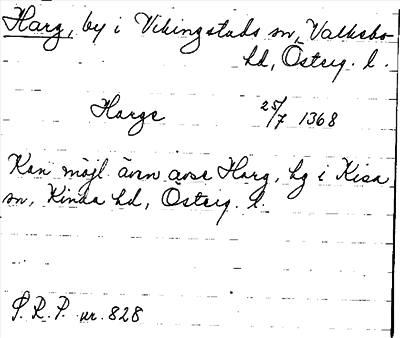 Harg, by i Vikingstads sn, Valkebo
hd, Österg. l.
Harge 25/7 1368
Kan möjl även avse Harg, hg i Kisa
sn, Kinda hd, Österg. l.
S.R.P. nr. 828